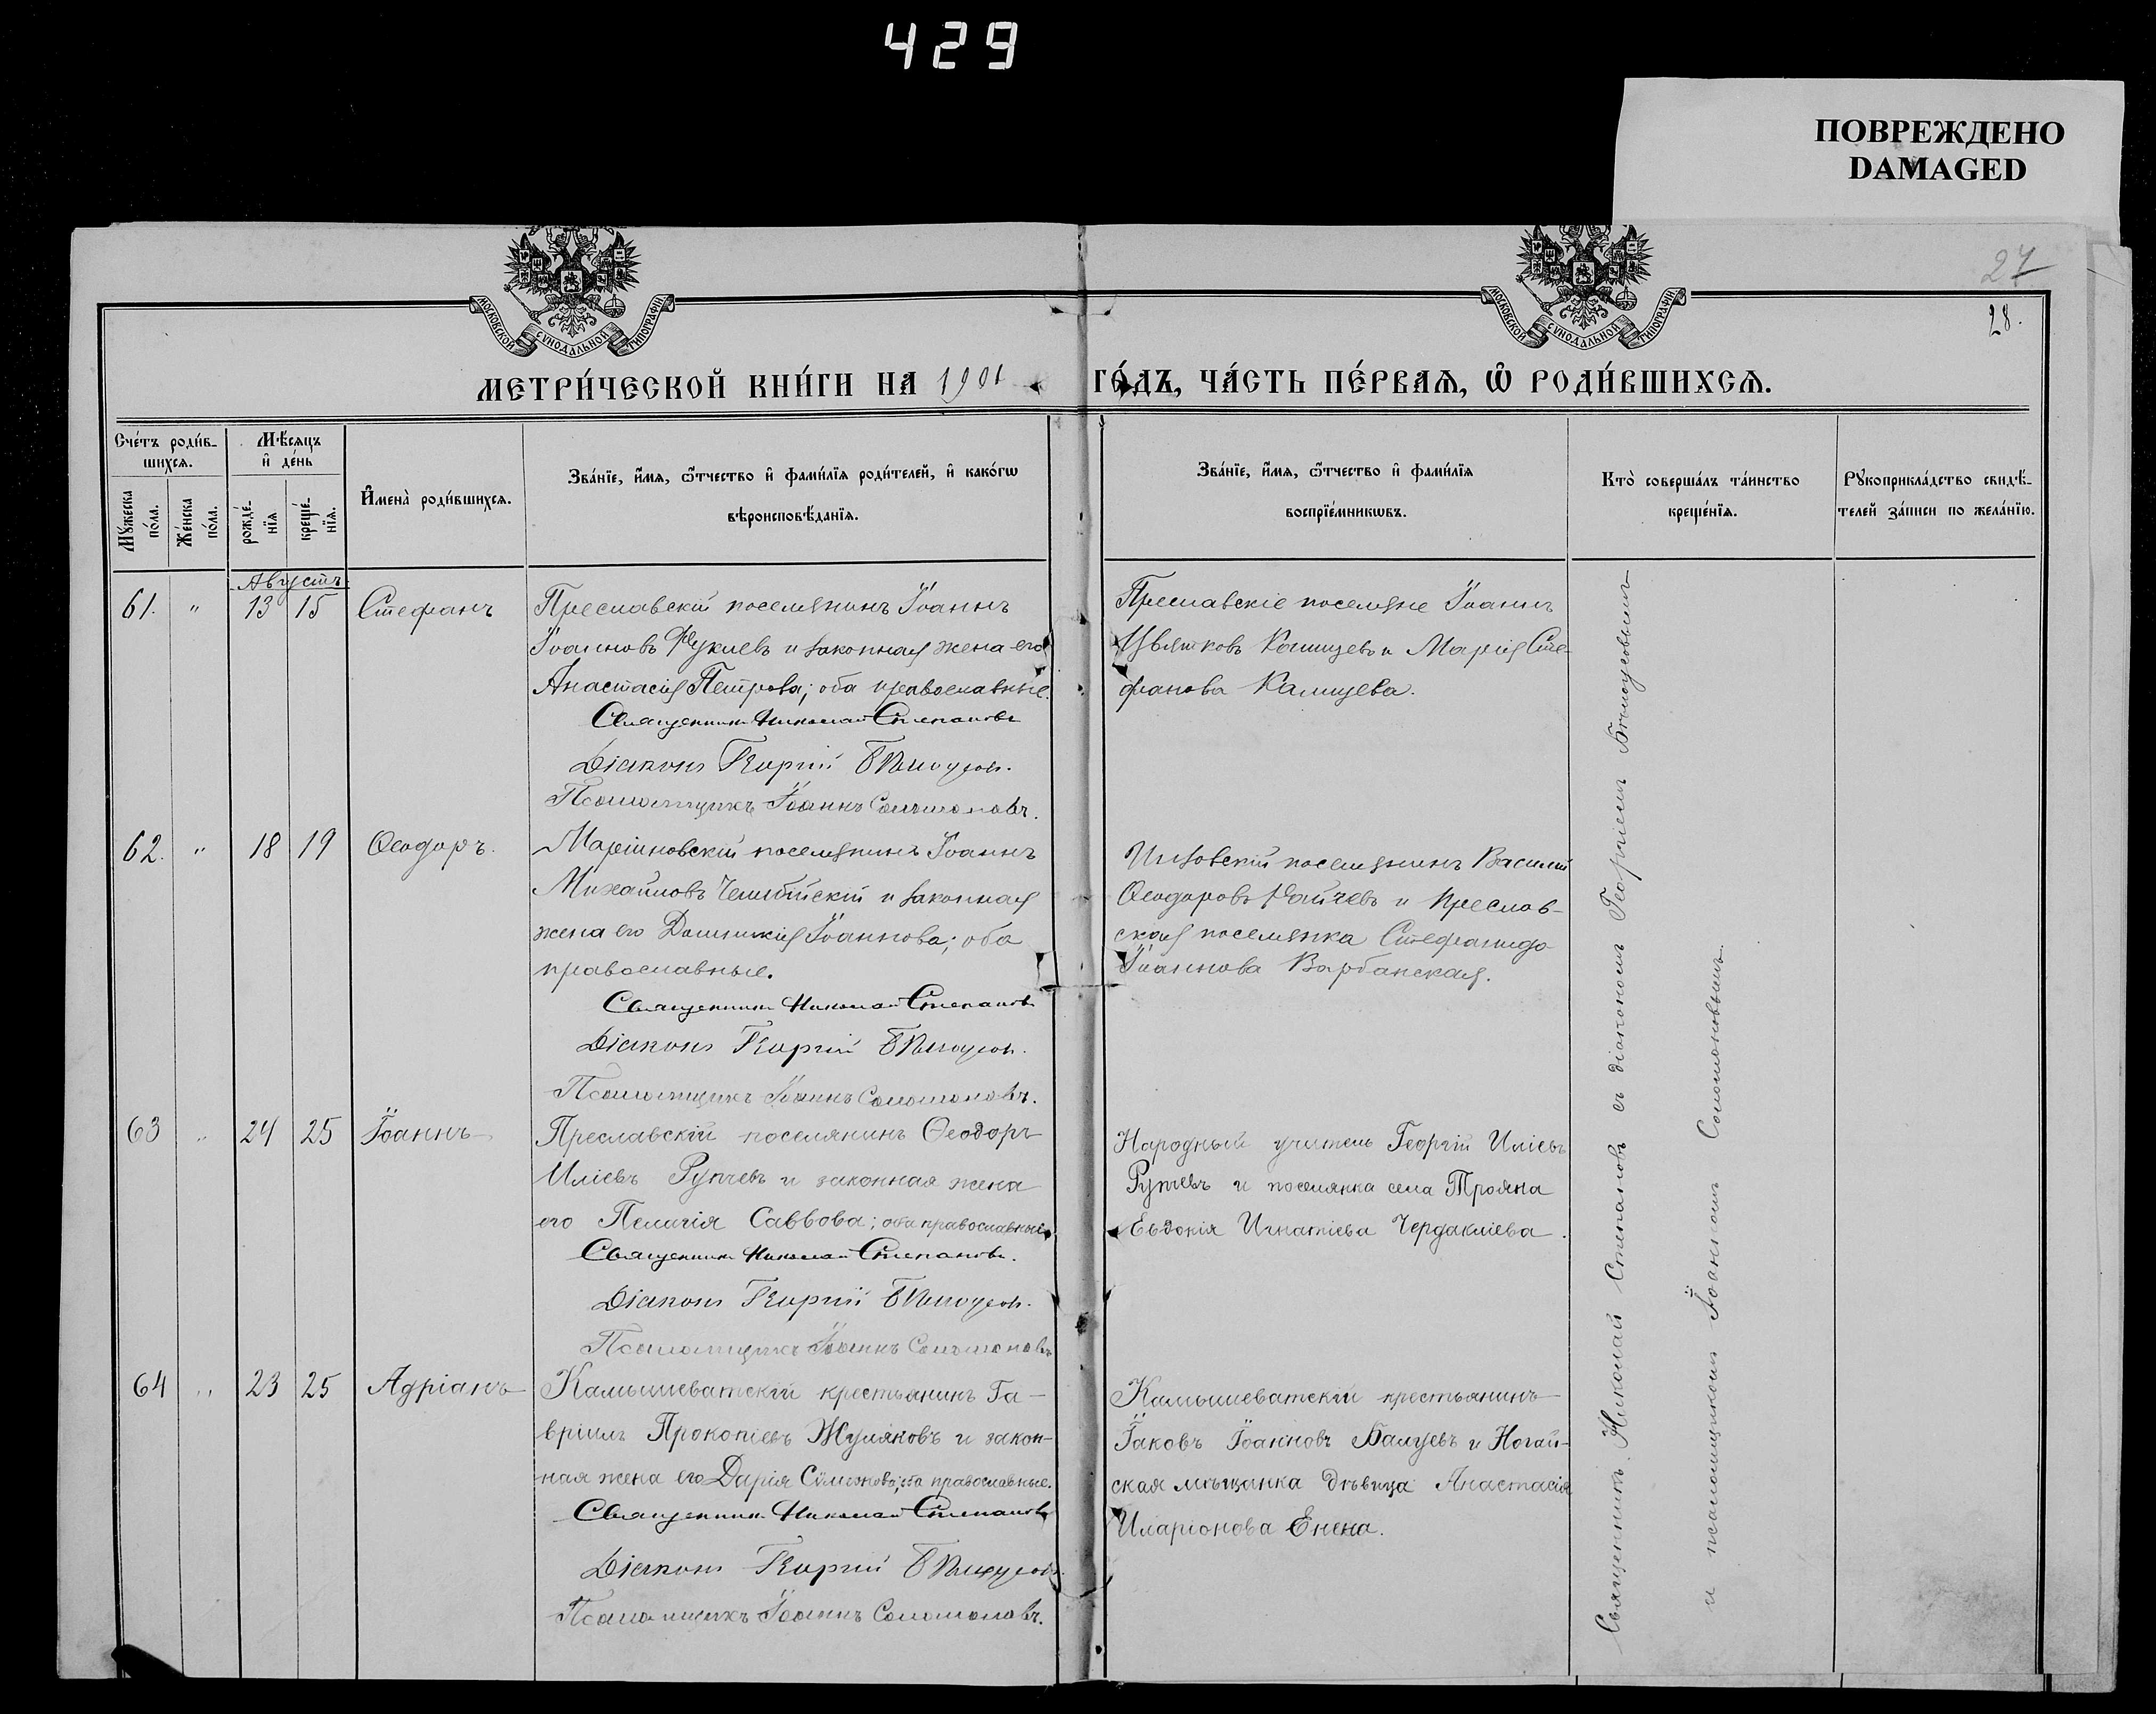 429
ПОВРЕЖДЕНО
DAMAGED
27
28.
МОСКОВСКОЙ СѴНОДАЛЬНОЙ ТИПОГРАФІИ
МОСКОВСКОЙ СѴНОДАЛЬНОЙ ТИПОГРАФІИ
МЕТРИ́ЧЕСКОЙ КНИ́ГИ НА 1901 ГО́ДЪ, ЧА́СТЬ ПЕ́РВАѦ, Ѡ҆ РОДИ́ВШИХСѦ.
Сче́тъ роди́в-
шихсѧ.
Мꙋжеска по́ла.
Же́нска по́ла.
Мѣ́сѧцъ
и҆ де́нь
рожде́-
нїѧ
креще́-
нїѧ.
И҆мена̀ роди́вшихсѧ.
Зва́нїе, и҆́мѧ, ѻ҆́тчество и҆ фами́лїѧ роди́телей, и҆ како́гѡ
вѣроисповѣ́данїѧ.
Зва́нїе, и҆́мѧ, ѻ҆́тчество и҆ фами́лїѧ
воспрїе́мникѡвъ.
Кто̀ соверша́лъ та́инство
креще́нїѧ.
Рꙋкоприкла́дство свидѣ́-
телей за́писи по жела́нїю.
Августъ
61. " 13 15 Стефанъ
Преславскій поселянинъ Іоаннъ
Іоанновъ Фукиевъ и законная жена его
Анастасія Петрова; оба православные.
Священникъ Николай Степановъ
Діаконъ Георгій Бѣлоусов.
Псаломщикъ Іоаннъ Соломоновъ.
Преславскіе поселяне Іоаннъ
Цвятковъ Калицевъ и Марія Сте-
фанова Калицева.
62. " 18 19 Ѳеодоръ.
Маріиновскій поселянинъ Іоаннъ
Михайловъ Челибійскій и законная
жена его Домникія Іоаннова; оба
православные.
Священникъ Николай Степановъ
Діаконъ Георгій Бѣлоусов.
Псаломщикъ Іоаннъ Соломоновъ.
Инзовскій поселянинъ Василій
Ѳеодоровъ Райчевъ и Преслав-
ская поселянка Стефанида
Іоаннова Варбанская.
63 " 24 25 Іоаннъ
Преславскій поселянинъ Ѳеодоръ
Иліевъ Рупчевъ и законная жена
его Пелагія Саввова; оба православные.
Священникъ Николай Степановъ.
Діаконъ Георгій Бѣлоусов.
Псаломщикъ Іоаннъ Соломоновъ
Народный учитель Георгій Иліевъ
Рупчевъ и поселянка села Трояна
Евдокія Игнатіева Чердакліева.
64 " 23 25 Адріанъ
Камышеватскій крестьянинъ Га-
вріилъ Прокопіевъ Жуляковъ и закон-
ная жена его Дарія Сѵмеонова; оба православные.
Священникъ Николай Степановъ
Діаконъ Георгій Бѣлоусов.
Псаломщикъ Іоаннъ Соломоновъ.
Камышеватскій крестьянинъ
Іаковъ Іоанновъ Балуевъ и Ногай-
ская мѣщанка дѣвица Анастасія
Иларіонова Енена.
Священникъ Николай Степановъ съ діакономъ Георгіемъ Бѣлоусовымъ
и псаломщикомъ Іоанномъ Соломоновымъ.